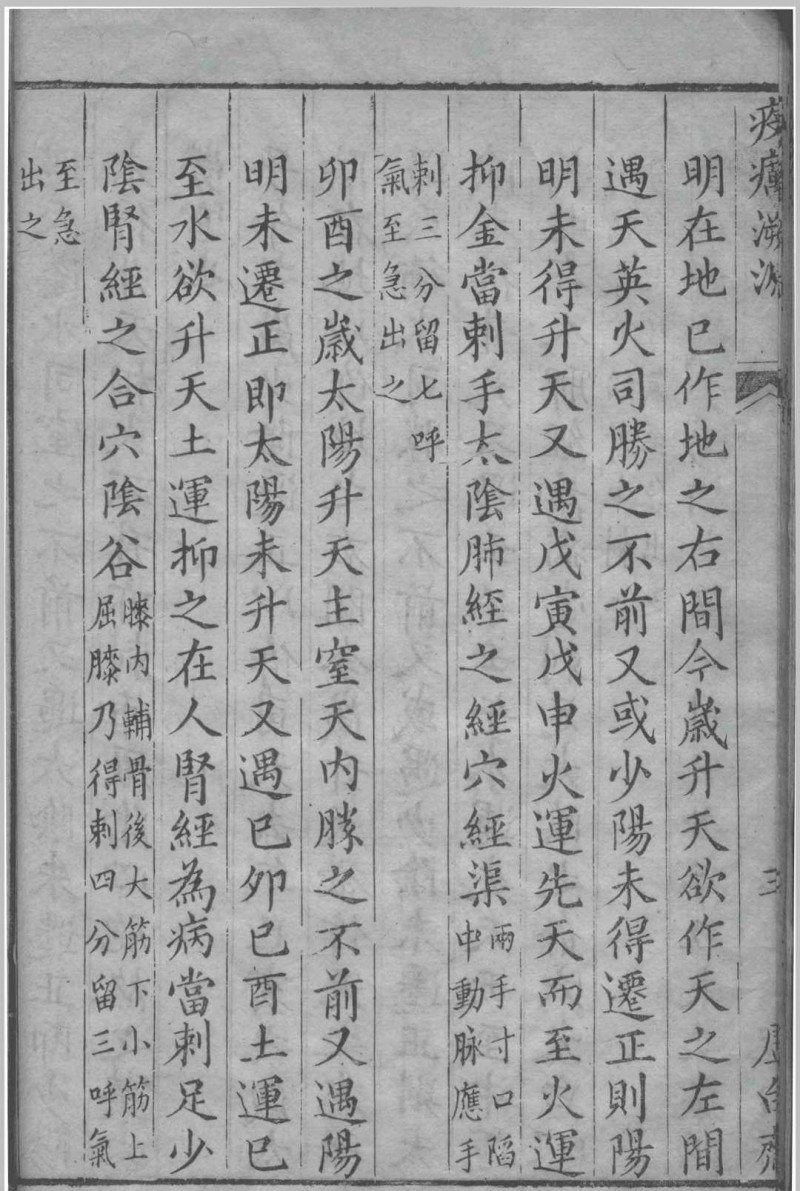 疫癘溯源
三
明在地已作地之右間今歲升天欲作天之左間
遇天英火司勝之不前又或少陽未得遷正則陽
明未得升天又遇戊寅戊申火運先天而至火運
抑金當刺手太陰肺經之經穴經渠兩手寸口陷中動脉應手
刺三分留七呼氣至急出之
卯酉之歲太陽升天主窒天內勝之不前又遇陽
明未遷正即太陽未升天又遇巳卯巳酉土運巳
至水欲升天土運抑之在人腎經為病當刺足少
陰腎經之合穴陰谷膝內輔骨後大筋下小筋上屈膝乃得刺四分留三呼氣
至急出之